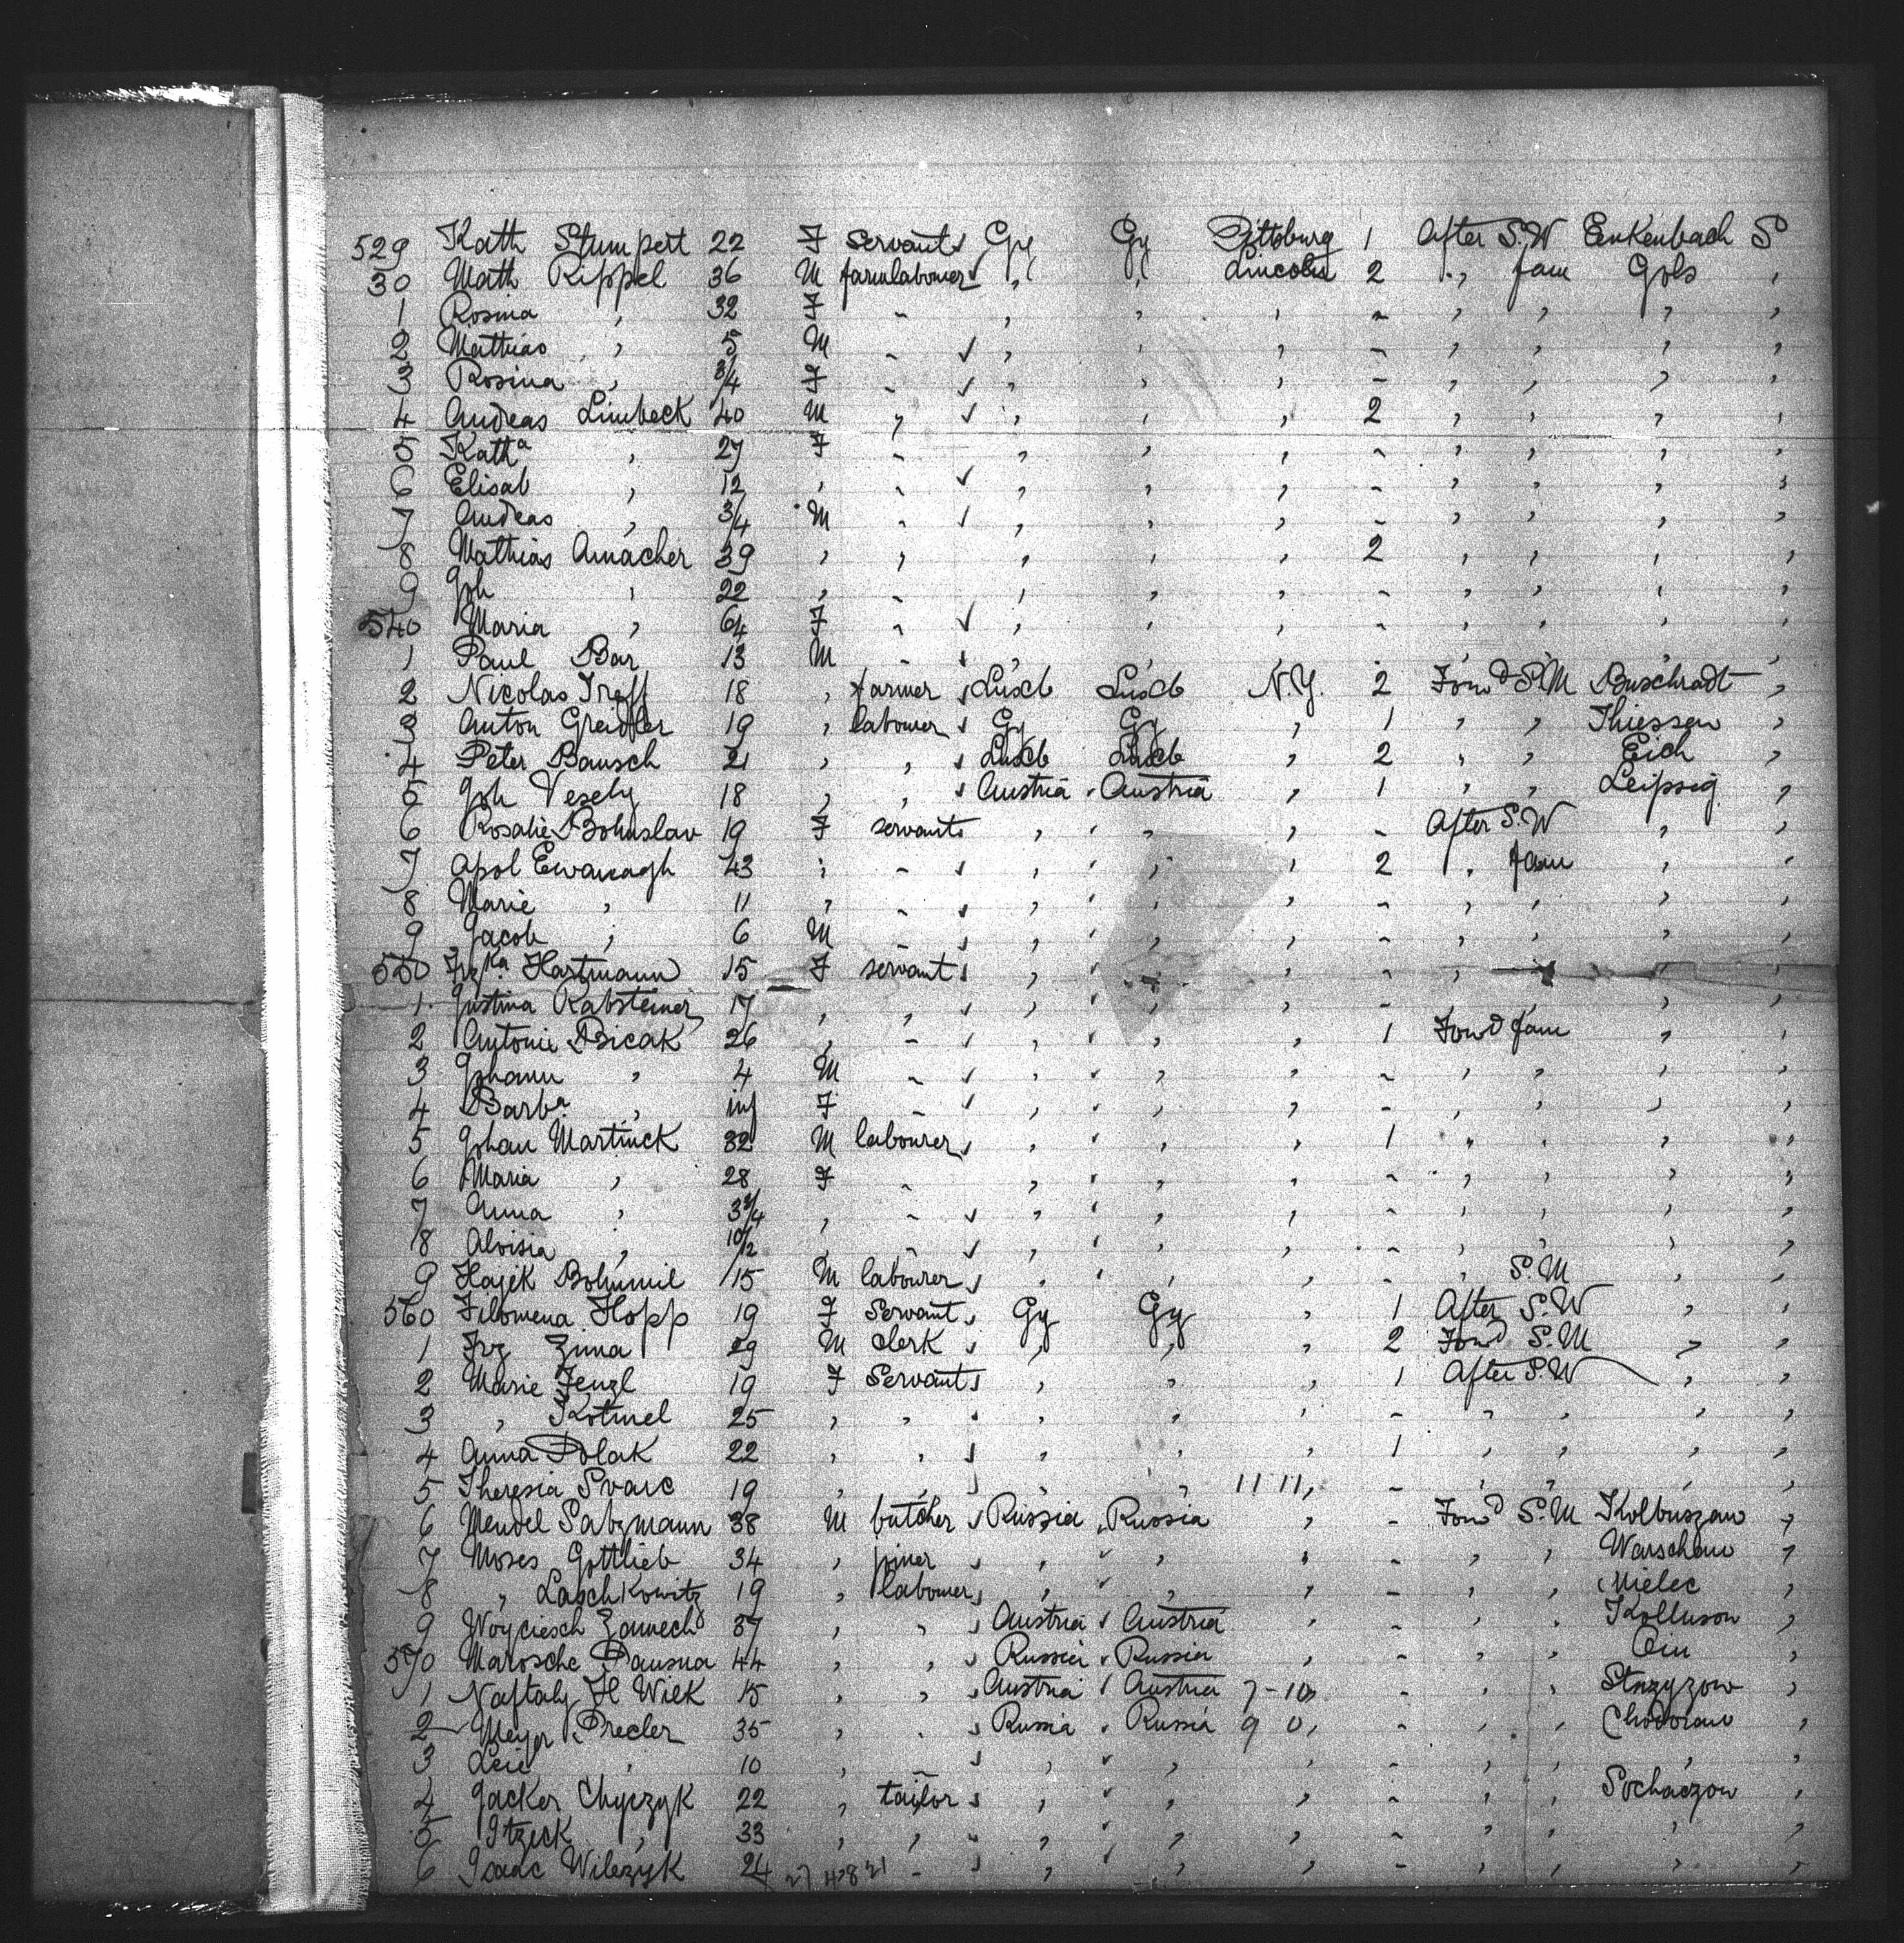 529 Kath Stumpert 22 F Servant ✓ Gy Gy Pittsburg 1 After S.W Enkenbach S
30 Math Rippel 36 M farmlabourer ✓ , , Lincoln 2 ., fam Gols ,
1 Rosina , 32 F - , , , - , , , ,
2 Mathias , 5 M - ✓ , , , - , , , ,
3 Rosina , 3/4 F - ✓ , , , - , , , ,
4 Andreas Limbeck 40 M , ✓ , , , 2 , , , ,
5 Katha , 27 F - , , , - , , , ,
6 Elisab , 12 , - ✓ , , , - , , , ,
7 Andeas , 3/4 M - ✓ , , , - , , , ,
8 Mathias Amacher 39 , , , , , 2 , , , ,
9 Joh , 22 , - , , , - , , , ,
540 Maria , 64 F - ✓ , , , - , , , ,
1 Paul Bar 13 M - ✓ , , , - , , , ,
2 Nicolas Treff 18 , farmer ✓ Luxb Luxb N.Y. 2 Forwd S.M Buschradt ,
3 Anton Greidler 19 , labourer ✓ Gy Gy , 1 , , Thiessen ,
4 Peter Bausch 21 , , ✓ Luxb Luxb , 2 , , Eich ,
5 Joh Vesely 18 , , ✓ Austria ✓ Austria , 1 , , Leipsig ,
6 Rosalie Bohuslav 19 F servant ✓ , ✓ , , - After S.W , ,
7 Apol Ewanagh 43 , - ✓ , ✓ , , 2 , fam , ,
8 Marie , 11 , - ✓ , ✓ , , - , , , ,
9 Jacob , 6 M - ✓ , ✓ , , - , , , ,
550 Frzka Hartmann 15 F servant ✓ , ✓ , , - , , ,
1 Justina Rabsteiner 17 , , ✓ , ✓ , , - , , , ,
2 Antonie Bicak 26 , - ✓ , ✓ , , 1 Forwd fam , ,
3 Johann , 4 M - ✓ , ✓ , , - , , , ,
4 Barba , inf F - ✓ , ✓ , , - , , , ,
5 Johan Martinek 32 M labourer ✓ , ✓ , , 1 , , , ,
6 Maria , 28 F - , ✓ , , - , , , ,
7 Anna , 3 3/4 , - ✓ , ✓ , , - , , , ,
8 Aloisia , 10/12 , - ✓ , ✓ , , - , , , ,
9 Hajek Bohumil 15 M labourer ✓ , ✓ , , - , S.M , ,
560 Filomena Hopp 19 F Servant ✓ Gy Gy , 1 After S.W , ,
1 Frz Zima 29 M clerk ✓ , , , 2 Forwd S.M , ,
2 Marie Fenzl 19 F Servant ✓ , , , 1 After S.W , ,
3 , Kotmel 25 , , ✓ , , , - , , , ,
4 Anna Polak 22 , , ✓ , , , 1 , , , ,
5 Theresia Svarc 19 , , ✓ , , 11 11, - , , , ,
6 Mendel Satzmann 38 M butcher ✓ Russia ✓ Russia , - Forwd S.M Kolbuszow ,
7 Moses Gottlieb 34 , joiner ✓ , ✓ , , - , , Warschau ,
8 , Laschkowitz 19 , labourer ✓ , ✓ , , - , , Mielec ,
9 Woyciesch 37 , , ✓ Austria ✓ Austria , - , , Kolluson ,
570 Marosche Pausna 44 , , ✓ Russia ✓ Russia - , , ,
1 Naftaly H Wilk 15 , , ✓ Austria ✓ Austria 7-10 - , , Stazyzow ,
2 Meyer Drecler 35 , , ✓ Russia ✓ Russia 9 0, - , , Chodorow ,
3 Leie , 10 , - ✓ , ✓ , - , , , ,
4 Jacker Chyczyk 22 , tailor ✓ , ✓ , , - , , Sochaczow ,
5 Itzeck , 33 , , ✓ , ✓ , , - , , , ,
6 Isaac Wilczyk 24 - ✓ , ✓ , , - , , , ,